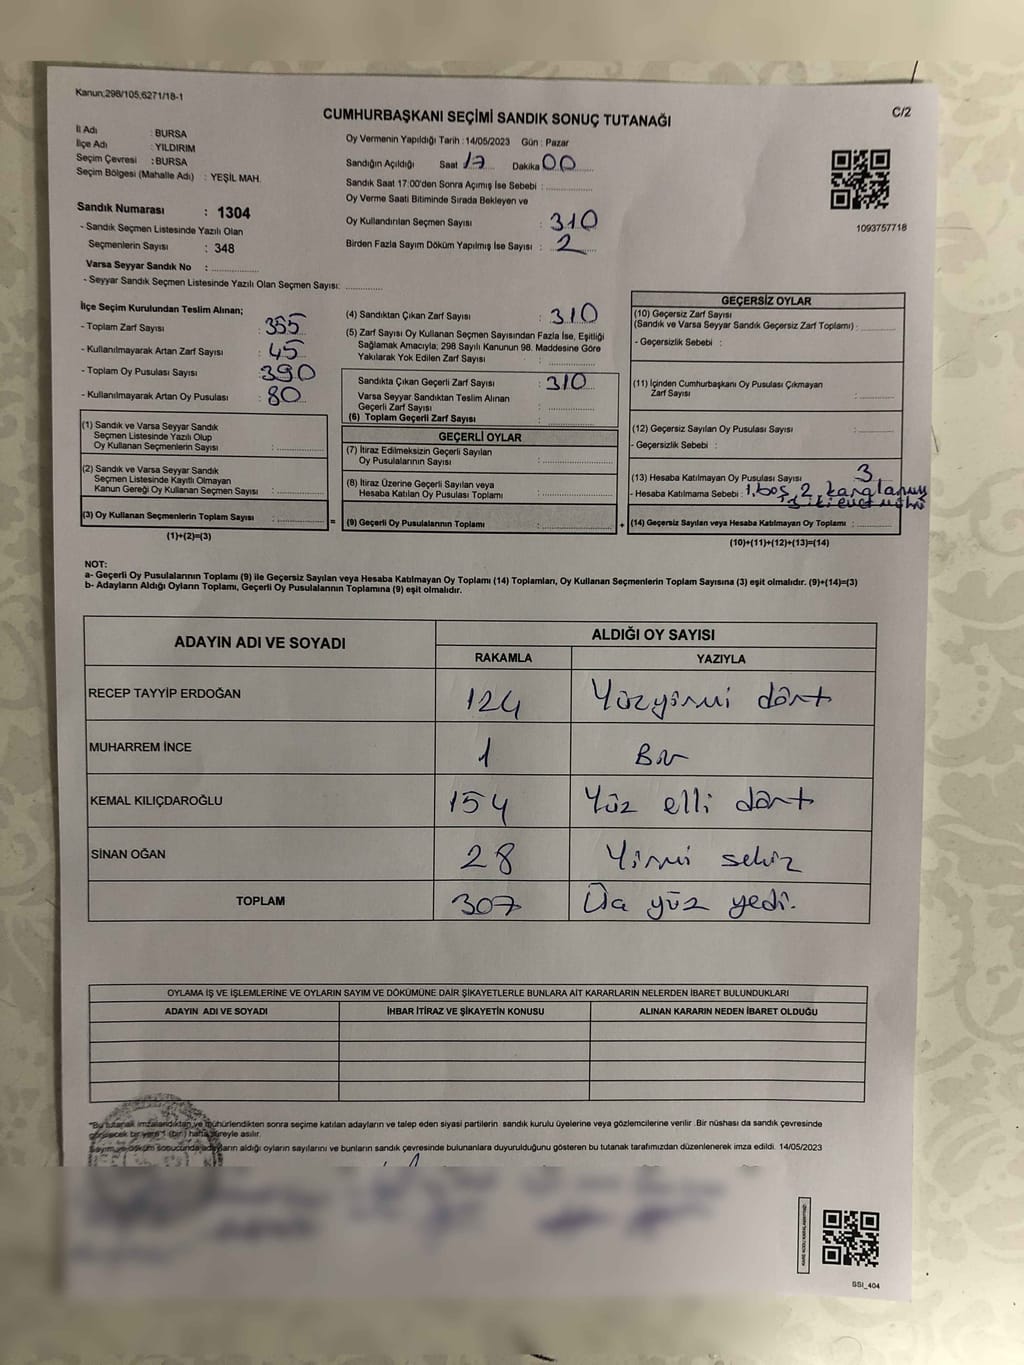 Kanun;298/105;6271/18-1
C/2
CUMHURBAŞKANI SEÇİMİ SANDIK SONUÇ TUTANAĞI
İl Adı : BURSA
İlçe Adı : YILDIRIM
Seçim Çevresi : BURSA
Seçim Bölgesi (Mahalle Adı) : YEŞİL MAH.
Sandık Numarası : 1304
- Sandık Seçmen Listesinde Yazılı Olan
Seçmenlerin Sayısı : 348
Varsa Seyyar Sandık No : ..............
- Seyyar Sandık Seçmen Listesinde Yazılı Olan Seçmen Sayısı: ............
Oy Vermenin Yapıldığı Tarih : 14/05/2023 Gün : Pazar
Sandığın Açıldığı Saat 17 Dakika 00
Sandık Saat 17:00'den Sonra Açımış İse Sebebi : ..............
Oy Verme Saati Bitiminde Sırada Bekleyen ve
Oy Kullandırılan Seçmen Sayısı : 310
Birden Fazla Sayım Döküm Yapılmış İse Sayısı : 2
1093757718
İlçe Seçim Kurulundan Teslim Alınan;
- Toplam Zarf Sayısı : 355
- Kullanılmayarak Artan Zarf Sayısı : 45
- Toplam Oy Pusulası Sayısı : 390
- Kullanılmayarak Artan Oy Pusulası : 80
(1) Sandık ve Varsa Seyyar Sandık
Seçmen Listesinde Yazılı Olup
Oy Kullanan Seçmenlerin Sayısı : ............
(2) Sandık ve Varsa Seyyar Sandık
Seçmen Listesinde Kayıtlı Olmayan
Kanun Gereği Oy Kullanan Seçmen Sayısı : ............
(3) Oy Kullanan Seçmenlerin Toplam Sayısı : ............
(1)+(2)=(3)
(4) Sandıktan Çıkan Zarf Sayısı : 310
(5) Zarf Sayısı Oy Kullanan Seçmen Sayısından Fazla İse, Eşitliği
Sağlamak Amacıyla; 298 Sayılı Kanunun 98. Maddesine Göre
Yakılarak Yok Edilen Zarf Sayısı : ............
Sandıkta Çıkan Geçerli Zarf Sayısı : 310
Varsa Seyyar Sandıktan Teslim Alınan
Geçerli Zarf Sayısı : ............
(6) Toplam Geçerli Zarf Sayısı : ............
GEÇERLİ OYLAR
(7) İtiraz Edilmeksizin Geçerli Sayılan
Oy Pusulalarının Sayısı : ............
(8) İtiraz Üzerine Geçerli Sayılan veya
Hesaba Katılan Oy Pusulası Toplamı : ............
= (9) Geçerli Oy Pusulalarının Toplamı : ............
GEÇERSİZ OYLAR
(10) Geçersiz Zarf Sayısı
(Sandık ve Varsa Seyyar Sandık Geçersiz Zarf Toplamı) : ............
- Geçersizlik Sebebi :
(11) İçinden Cumhurbaşkanı Oy Pusulası Çıkmayan
Zarf Sayısı : ............
(12) Geçersiz Sayılan Oy Pusulası Sayısı : ............
- Geçersizlik Sebebi :
(13) Hesaba Katılmayan Oy Pusulası Sayısı : 3
- Hesaba Katılmama Sebebi : 1 boş 2
+ (14) Geçersiz Sayılan veya Hesaba Katılmayan Oy Toplamı : ............
(10)+(11)+(12)+(13)=(14)
NOT:
a- Geçerli Oy Pusulalarının Toplamı (9) ile Geçersiz Sayılan veya Hesaba Katılmayan Oy Toplamı (14) Toplamları, Oy Kullanan Seçmenlerin Toplam Sayısına (3) eşit olmalıdır. (9)+(14)=(3)
b- Adayların Aldığı Oyların Toplamı, Geçerli Oy Pusulalarının Toplamına (9) eşit olmalıdır.
ADAYIN ADI VE SOYADI ALDIĞI OY SAYISI
RAKAMLA YAZIYLA
RECEP TAYYİP ERDOĞAN 124 Yüzyirmi dört
MUHARREM İNCE 1 Bir
KEMAL KILIÇDAROĞLU 154 Yüz elli dört
SİNAN OĞAN 28 Yirmi sekiz
TOPLAM 307 Üç yüz yedi.
OYLAMA İŞ VE İŞLEMLERİNE VE OYLARIN SAYIM VE DÖKÜMÜNE DAİR ŞİKAYETLERLE BUNLARA AİT KARARLARIN NELERDEN İBARET BULUNDUKLARI
ADAYIN ADI VE SOYADI İHBAR İTİRAZ VE ŞİKAYETİN KONUSU ALINAN KARARIN NEDEN İBARET OLDUĞU
"Bu tutanak imzalandıktan ve mühürlendikten sonra seçime katılan adayların ve talep eden siyasi partilerin sandık kurulu üyelerine veya gözlemcilerine verilir .Bir nüshası da sandık çevresinde
görülecek bir yere 1 (bir) hafta süreyle asılır.
Sayım ve döküm sonucunda adayların aldığı oyların sayılarını ve bunların sandık çevresinde bulunanlara duyurulduğunu gösteren bu tutanak tarafımızdan düzenlenerek imza edildi. 14/05/2023
SSI_404